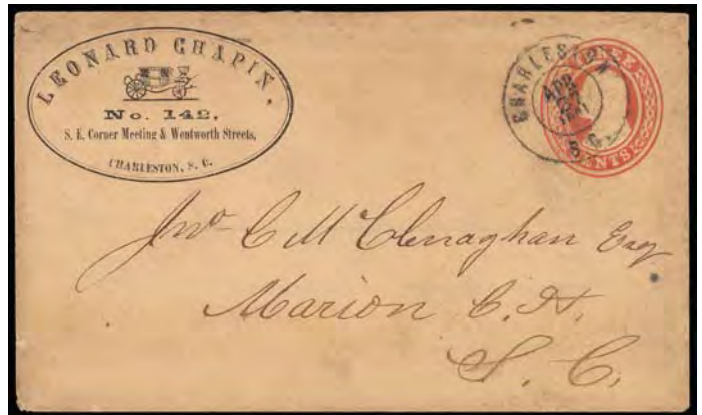 LEONARD CHAPIN.
No. 142,
S. E. Corner Meeting & Wentworth Streets,
CHARLESTON, S. C.
CHARLESTON
APR
CENTS
Jno C McClenaghan Esq
Marion C. H.
S. C.